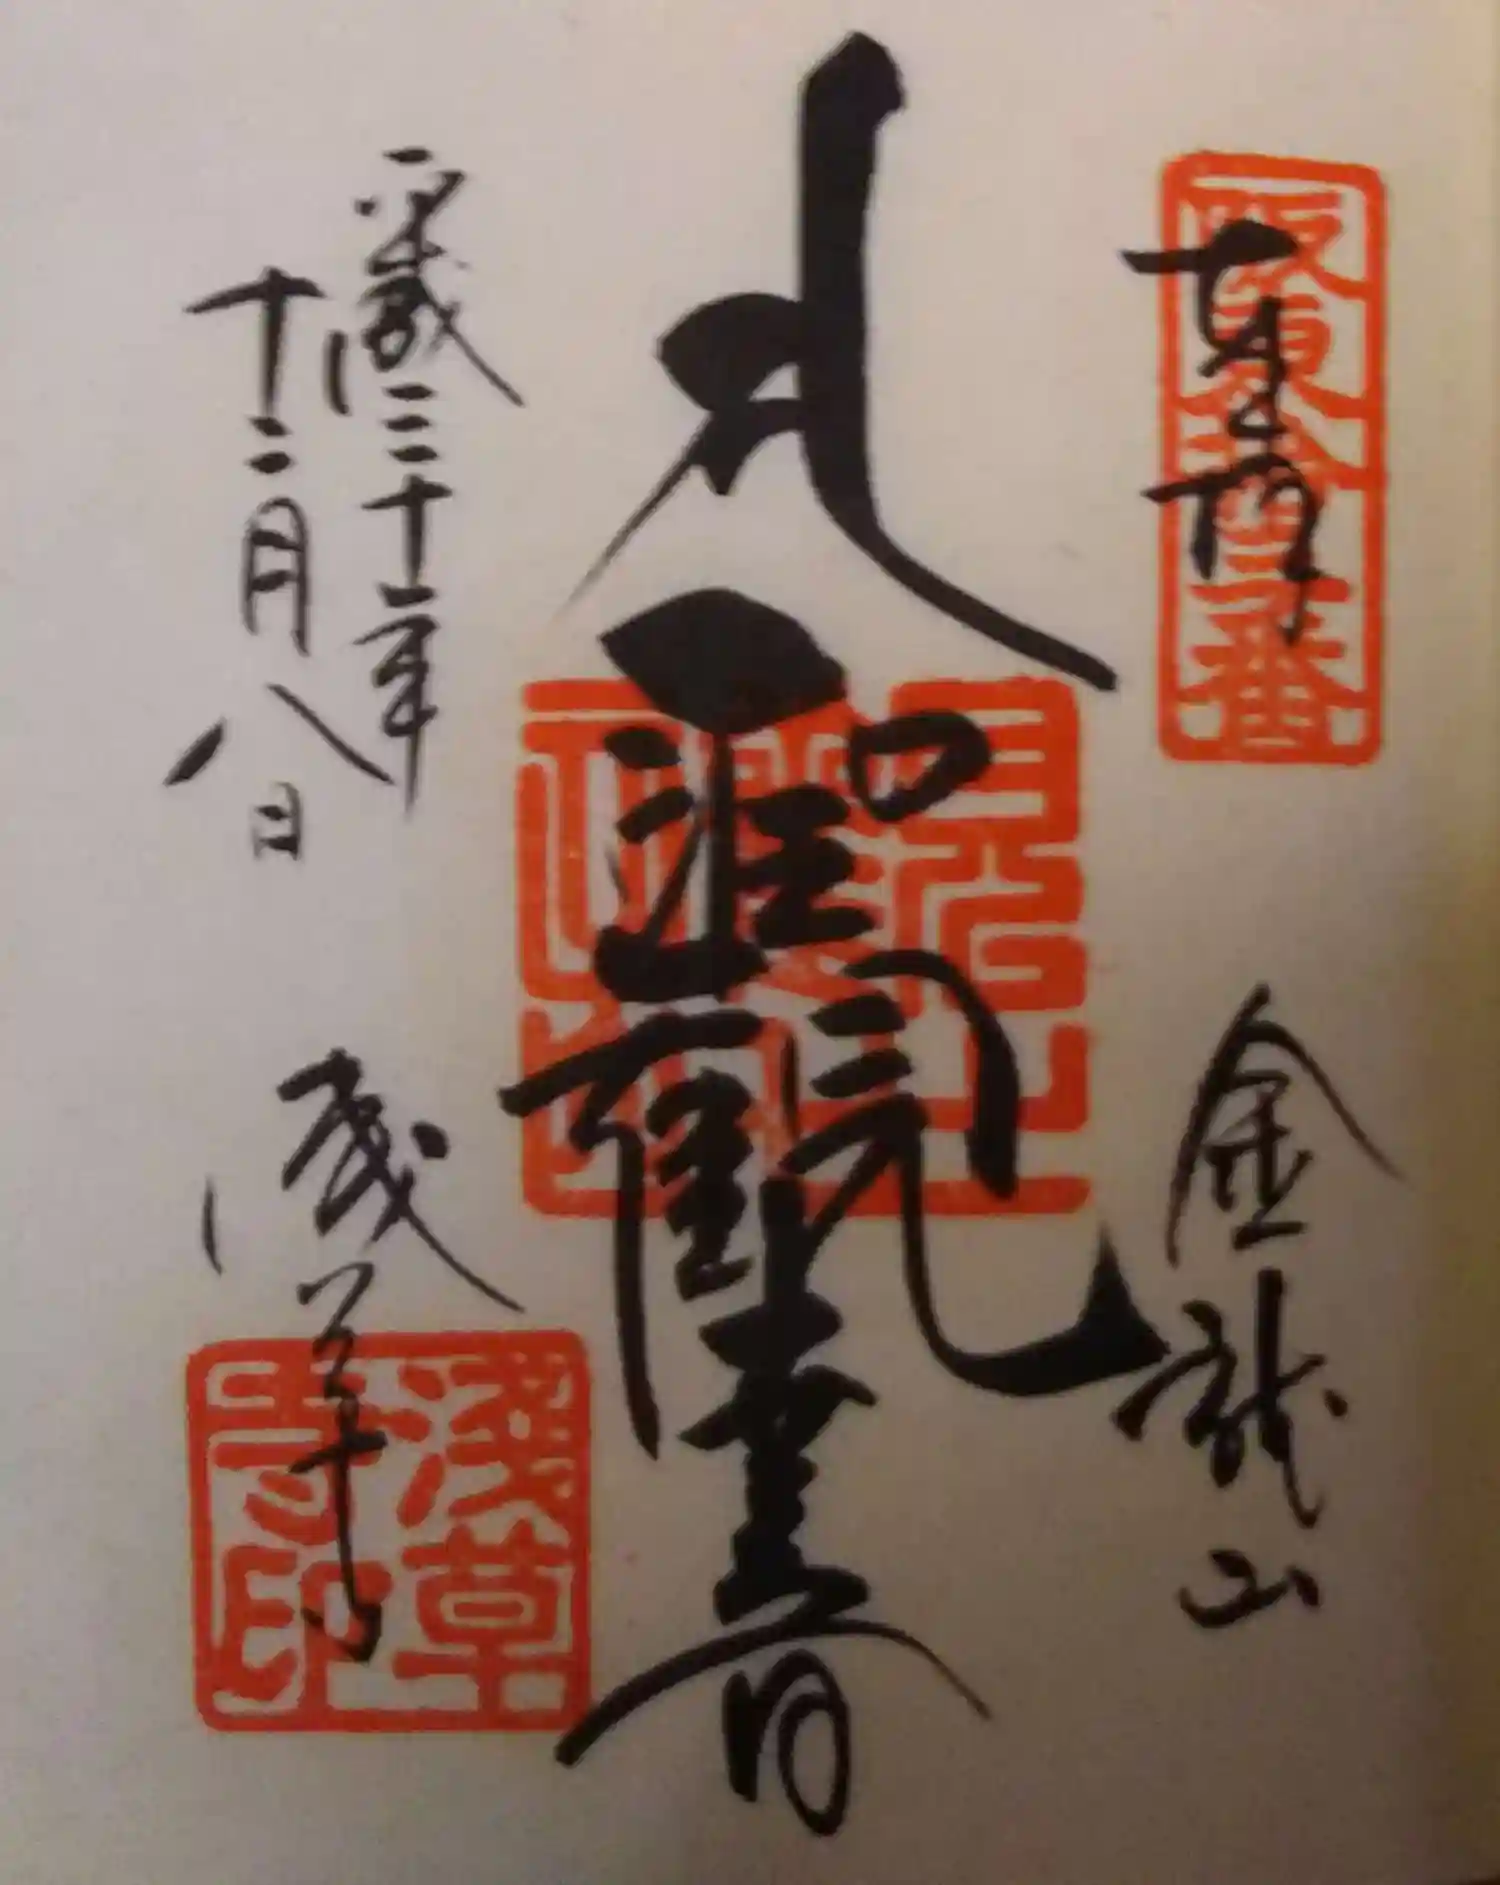 奉拝
阪東拾三番
金龍山
聖観世音
平成三十年
十二月八日
浅草寺
浅草寺印